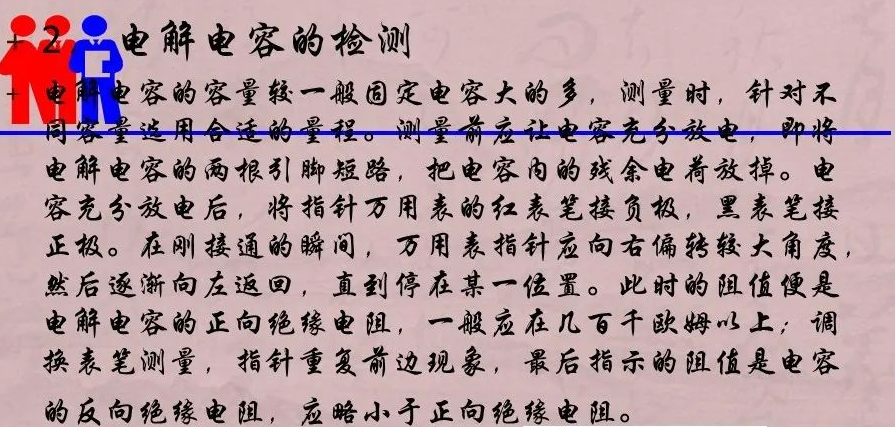 + 2. 电解电容的检测
+ 电解电容的容量较一般固定电容大的多，测量时，针对不
同容量选用合适的量程。测量前应让电容充分放电，即将
电解电容的两根引脚短路，把电容内的残余电荷放掉。电
容充分放电后，将指针万用表的红表笔接负极，黑表笔接
正极。在刚接通的瞬间，万用表指针应向右偏转较大角度，
然后逐渐向左返回，直到停在某一位置。此时的阻值便是
电解电容的正向绝缘电阻，一般应在几百千欧姆以上；调
换表笔测量，指针重复前边现象，最后指示的阻值是电容
的反向绝缘电阻，应略小于正向绝缘电阻。